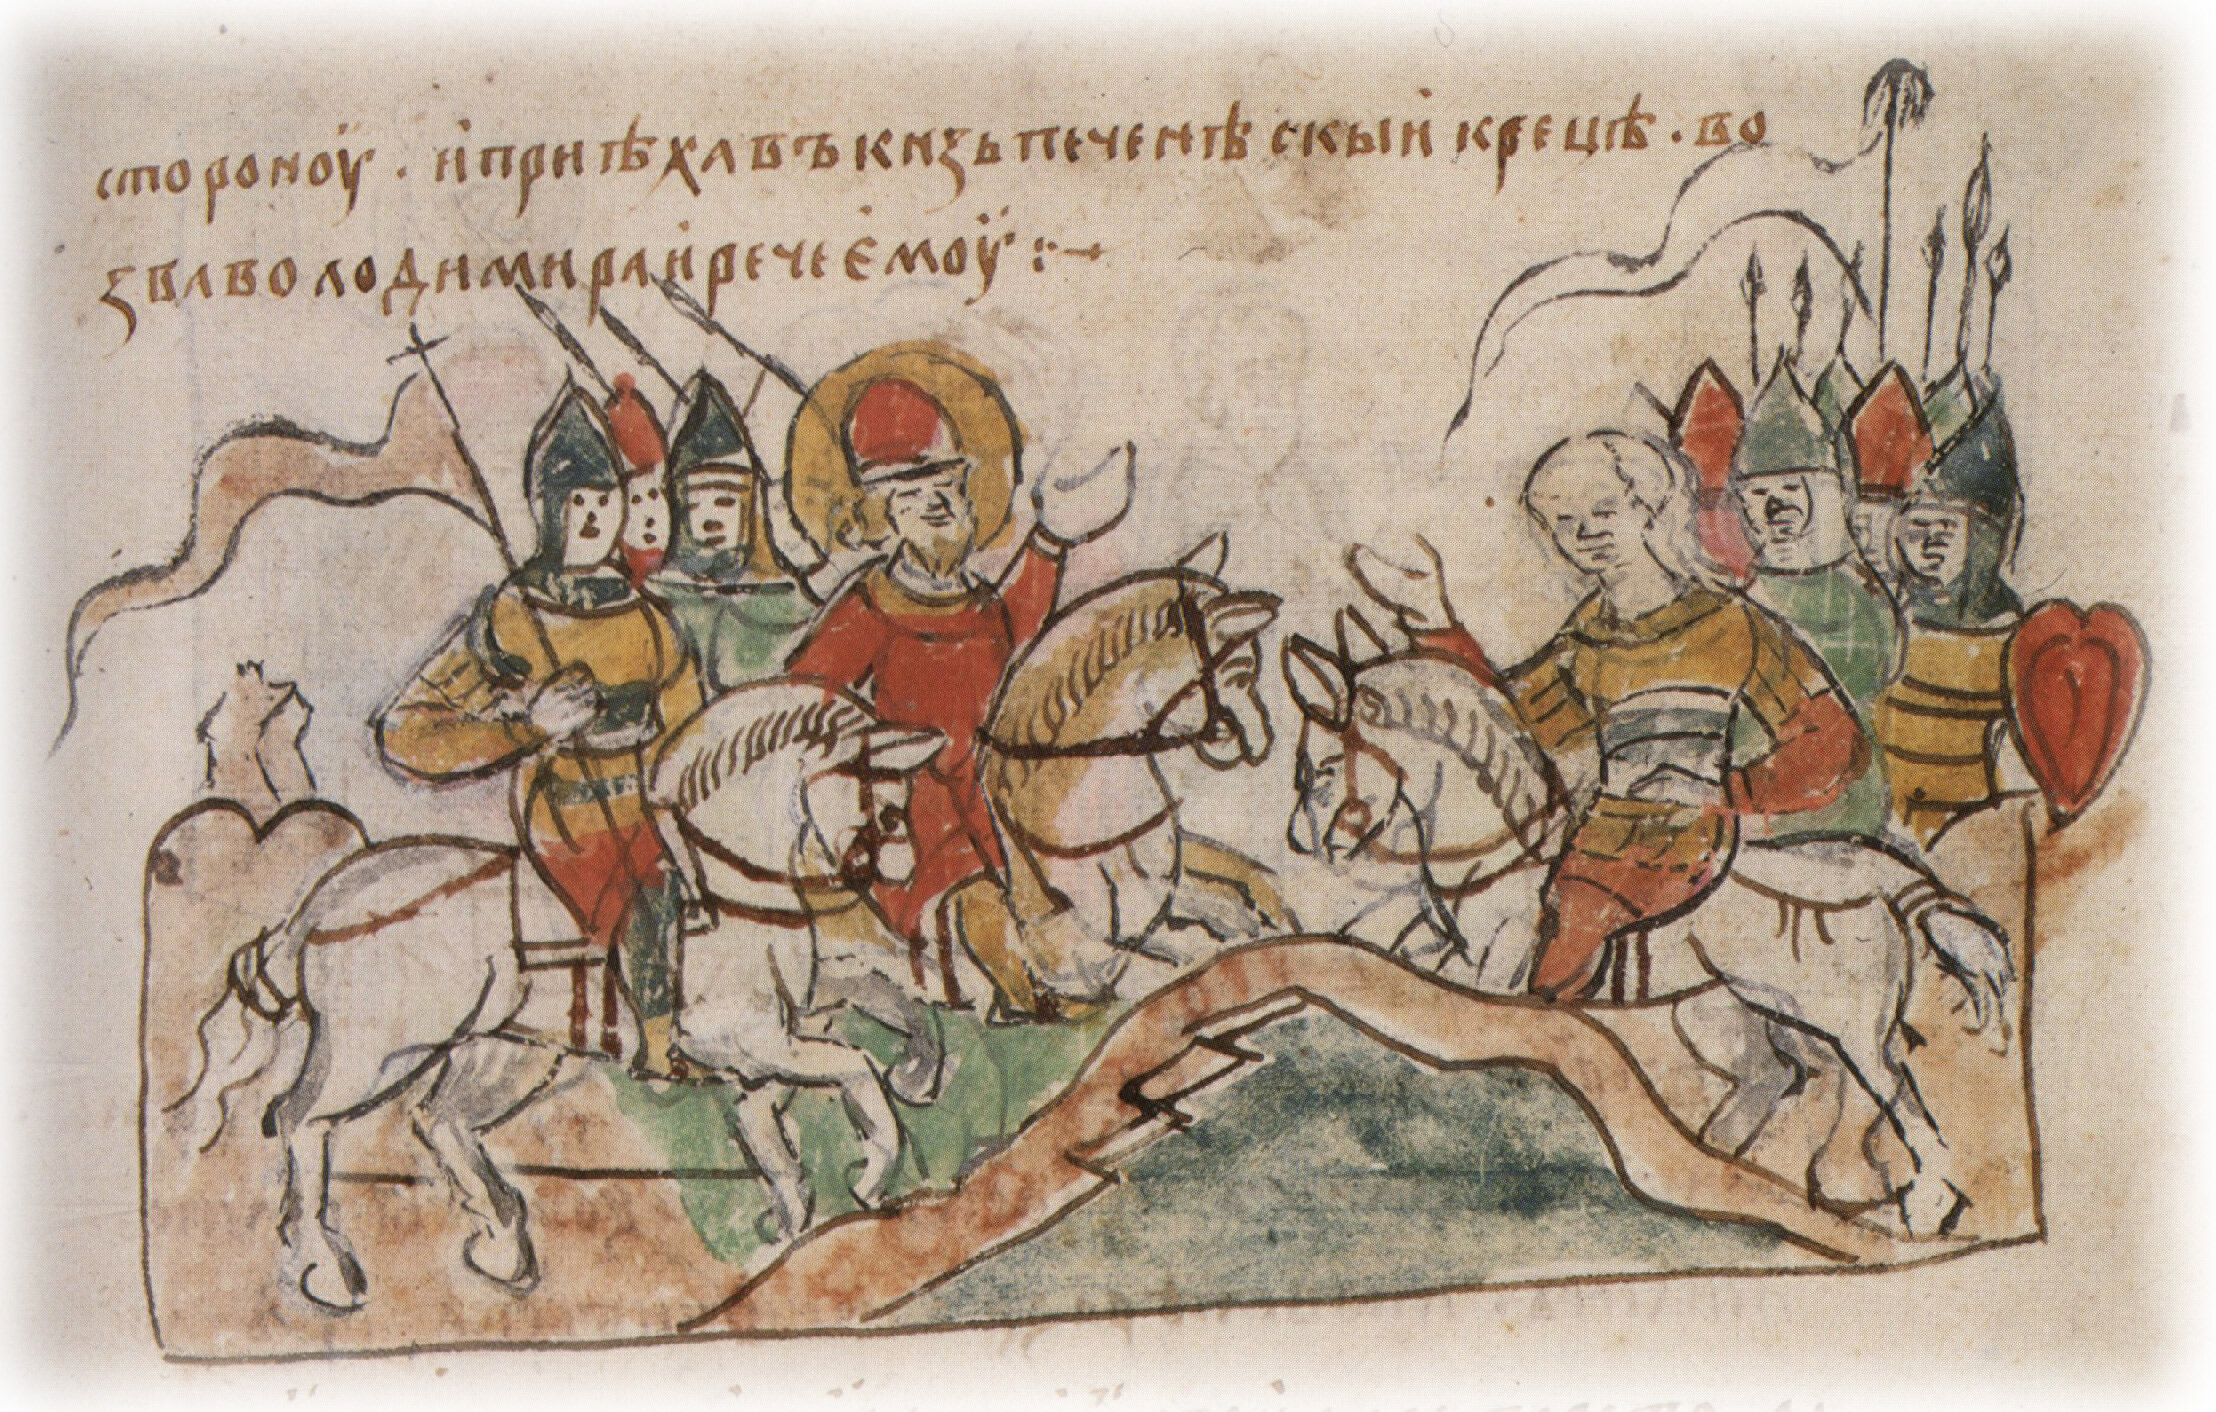 стороноу҆ . и҆ приѣхавъ кнзь печенѣскыи к рецѣ . во
зва володимира и҆ рече є҆моу҆ :→